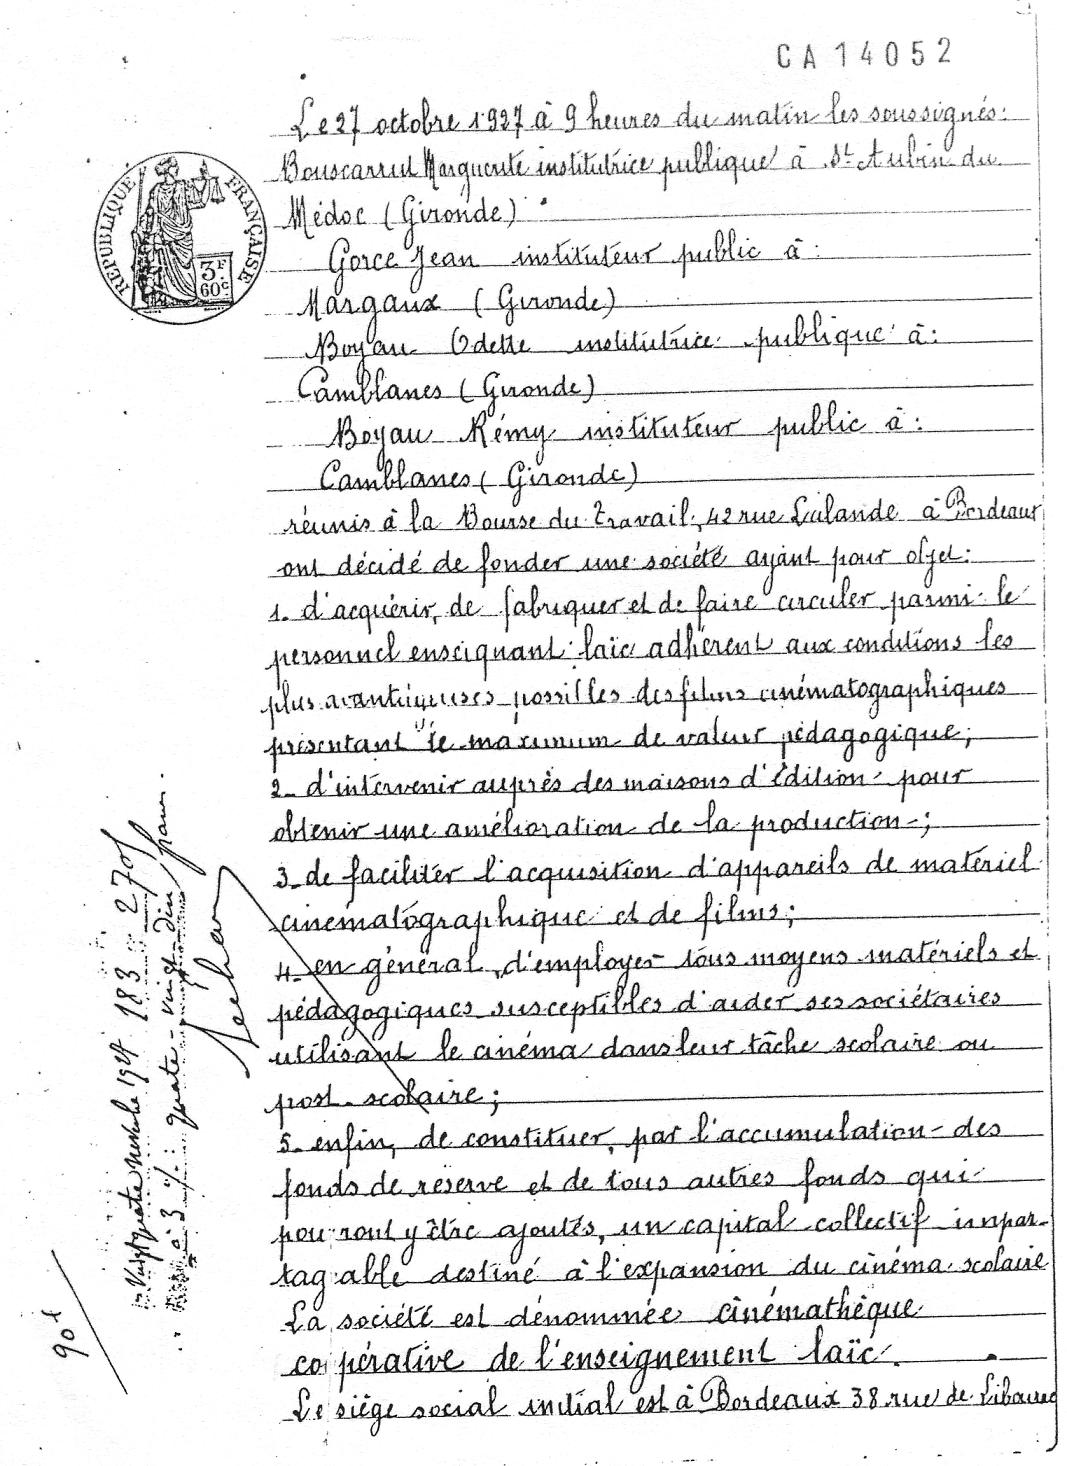 CA 14052
Le 27 octobre 1927 à 9 heures du matin les soussignés:
Bouscarrut Marguerite institutrice publique à St Aubin du
Médoc (Gironde)
REPUBLIQUE FRANÇAISE
3F
60c
Gorce Jean instituteur public à:
Margaux (Gironde)
Boyau Odette institutrice publique à:
Camblanes (Gironde)
Boyau Rémy instituteur public à:
Camblanes (Gironde)
réunis à la Bourse du Travail, 42 rue Lalande à Bordeaux
ont décidé de fonder une société ayant pour objet:
1. d'acquérir, de fabriquer et de faire circuler parmi le
personnel enseignant laïc adhérent aux conditions les
plus avantageuses possibles des films cinématographiques
présentant le maximum de valeur pédagogique;
2_ d'intervenir auprès des maisons d'édition pour
obtenir une amélioration de la production;
3_ de faciliter l'acquisition d'appareils de matériel
cinématographique et de films;
4_ en général, d'employer tous moyens matériels et
pédagogiques susceptibles d'aider ses sociétaires
utilisant le cinéma dans leur tâche scolaire ou
post-scolaire;
5_ enfin, de constituer, par l'accumulation des
fonds de réserve et de tous autres fonds qui
pourront y être ajoutés, un capital collectif impar-
tageable destiné à l'expansion du cinéma scolaire
La société est dénommée cinémathèque
coopérative de l'enseignement laïc.
Le siège social initial est à Bordeaux 38 rue de Libourne
Vingt quatre novembre 1927 183 270
à 3 %: quatre-vingt dix francs.
90f